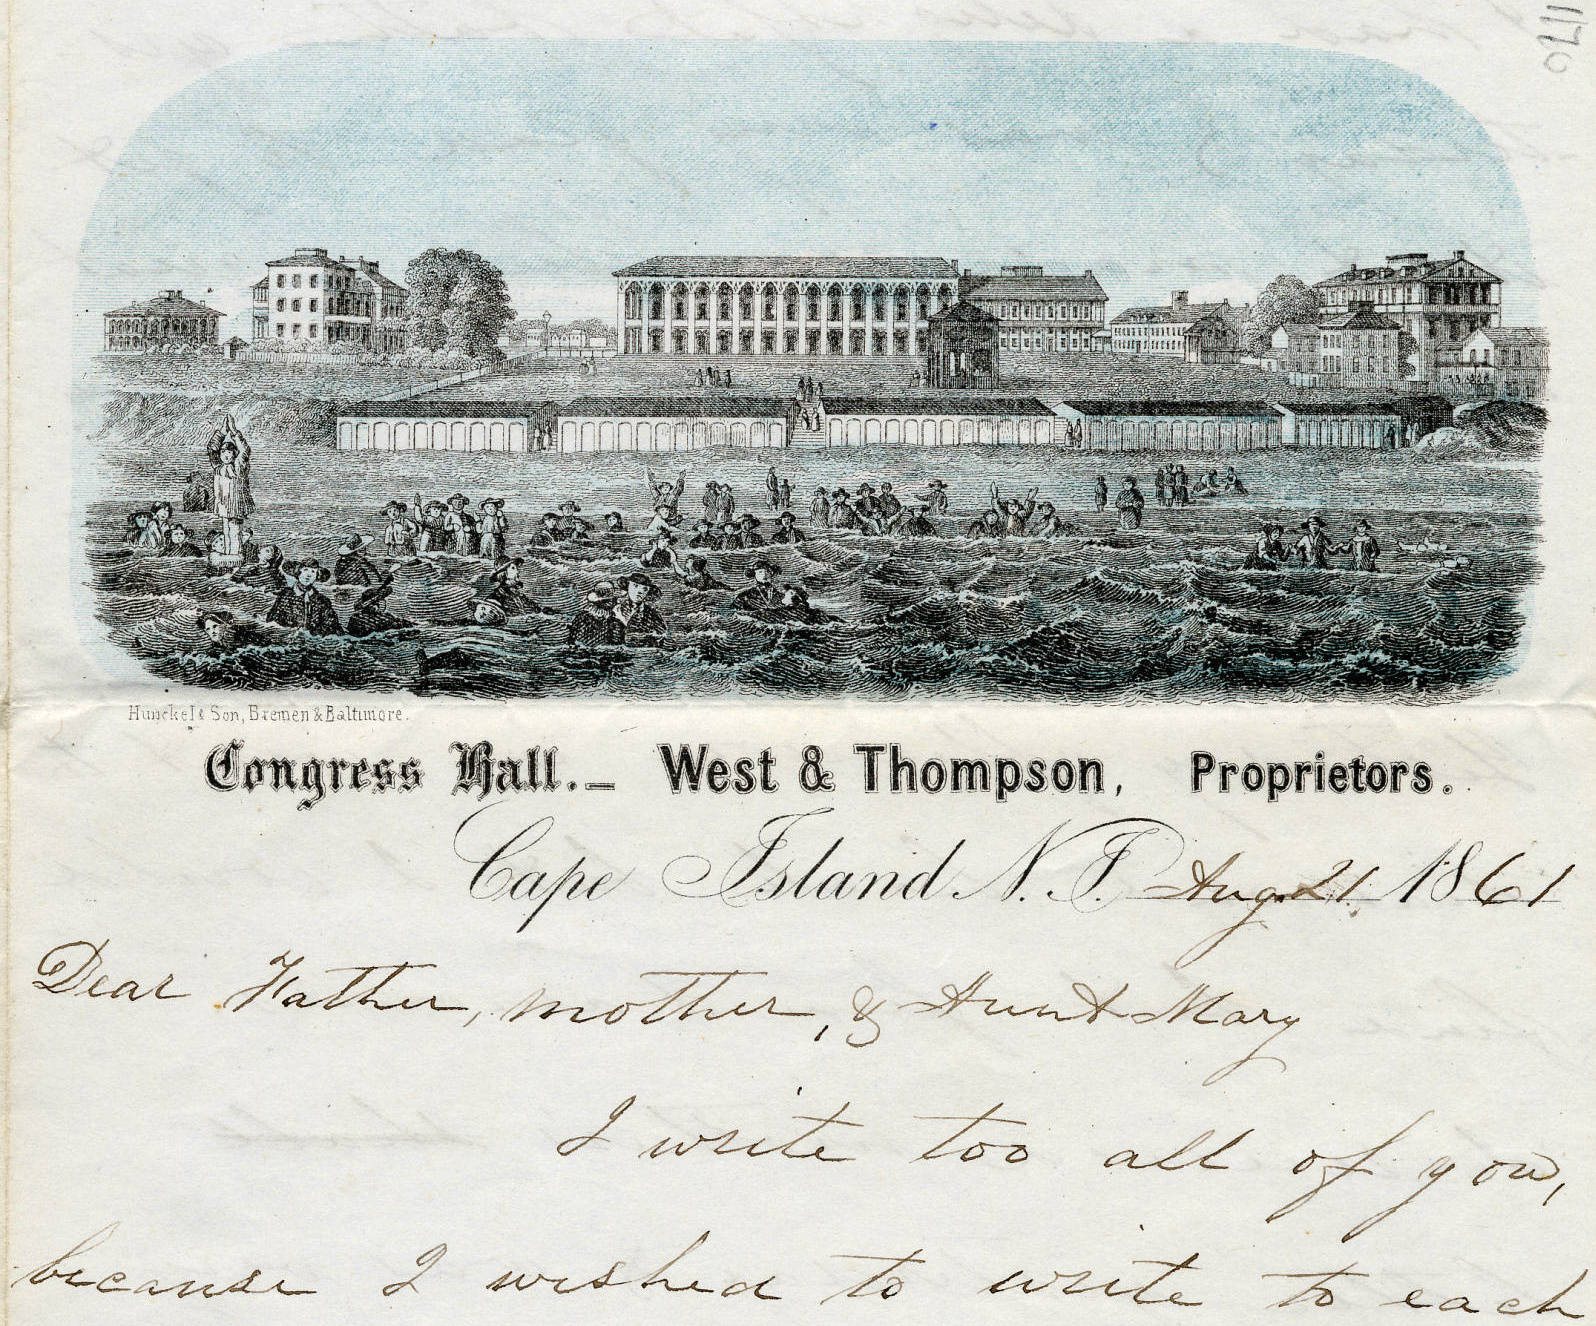 1170
Hunckel & Son, Bremen & Baltimore.
Congress Hall. – West & Thompson, Proprietors.
Cape Island N. J. Aug. 21 1861
Dear Father, mother, & Aunt Mary
I write too all of you,
because I wished to write to each